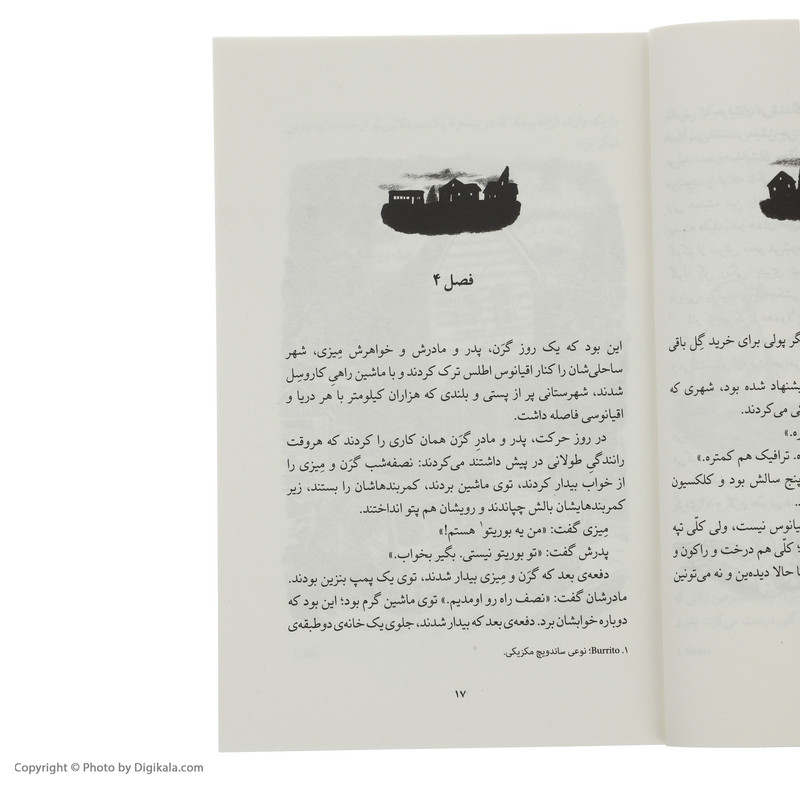 گر پولی برای خرید گِل باقی
یشنهاد شده بود، شهری که
می‌کردند.
ه. ترافیک هم کمتره.»
پنج سالش بود و کلکسیون
یانوس نیست، ولی کلّی تپه
؛ کلّی هم درخت و راکون و
ا حالا دیده‌ین و نه می‌تونین
فصل ۴
این بود که یک روز گرَن، پدر و مادرش و خواهرش مِیزی، شهر
ساحلی‌شان را کنار اقیانوس اطلس ترک کردند و با ماشین راهیِ کاروسِل
شدند، شهرستانی پر از پستی و بلندی که هزاران کیلومتر با هر دریا و
اقیانوسی فاصله داشت.
در روز حرکت، پدر و مادرِ گرَن همان کاری را کردند که هروقت
رانندگیِ طولانی در پیش داشتند می‌کردند: نصفه‌شب گرَن و مِیزی را
از خواب بیدار کردند، توی ماشین بردند، کمربندهاشان را بستند، زیر
کمربندهایشان بالش چپاندند و رویشان هم پتو انداختند.
مِیزی گفت: «من یه بوریتو۱ هستم!»
پدرش گفت: «تو بوریتو نیستی. بگیر بخواب.»
دفعه‌ی بعد که گرَن و مِیزی بیدار شدند، توی یک پمپ بنزین بودند.
مادرشان گفت: «نصف راه رو اومدیم.» توی ماشین گرم بود؛ این بود که
دوباره خوابشان برد. دفعه‌ی بعد که بیدار شدند، جلوی یک خانه‌ی دوطبقه‌ی
۱. Burrito؛ نوعی ساندویچ مکزیکی.
۱۷
Copyright © Photo by Digikala.com